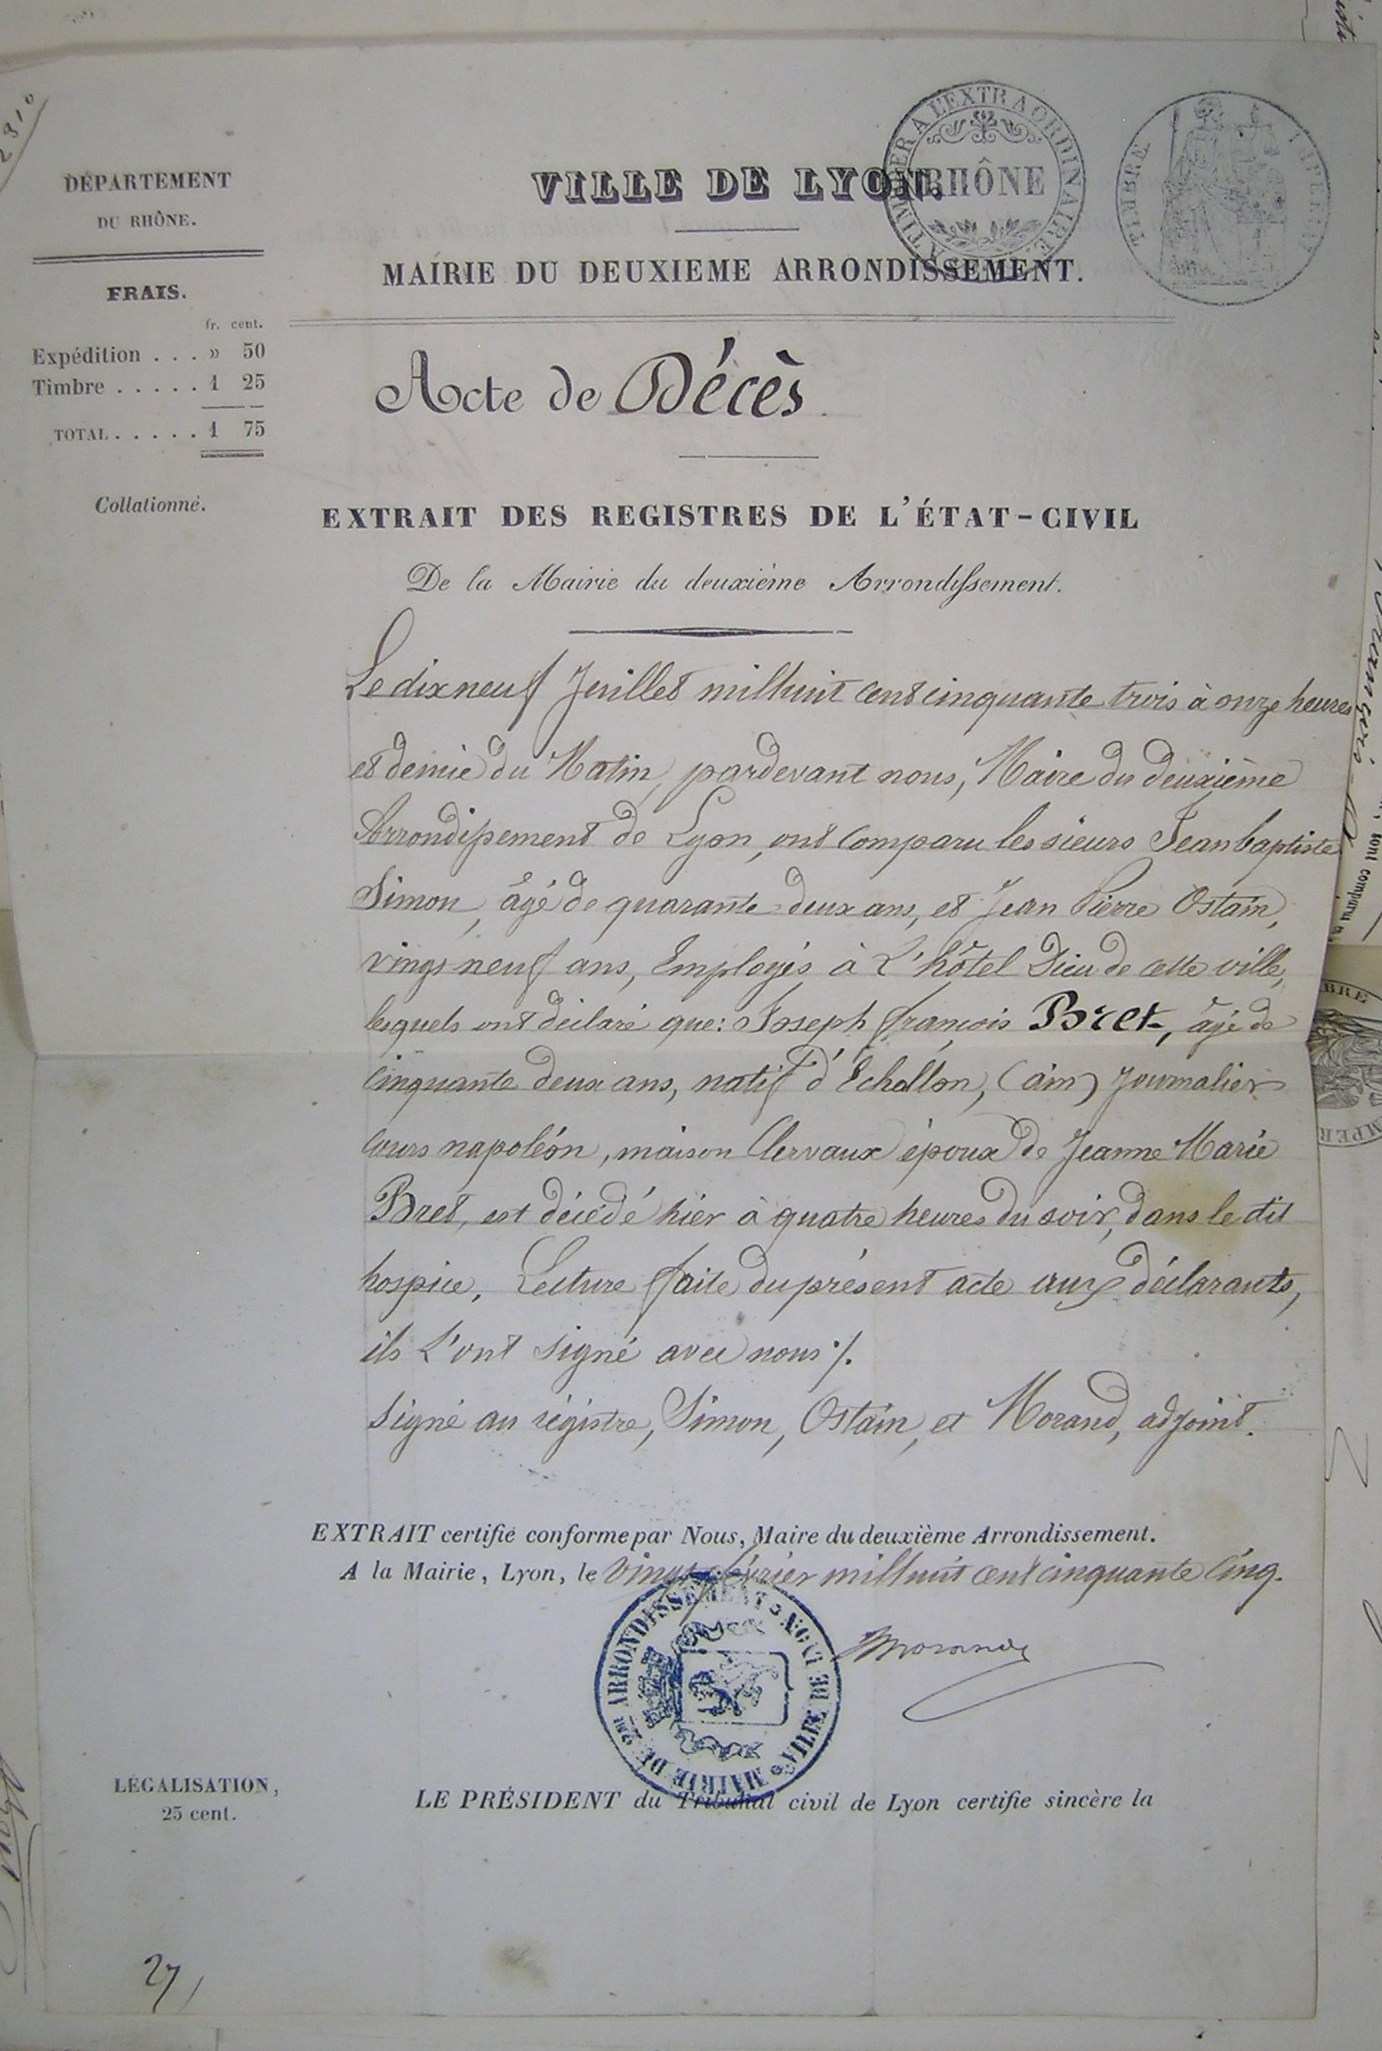 2310
DÉPARTEMENT
DU RHÔNE.
FRAIS.
fr. cent.
Expédition . . . » 50
Timbre . . . . . 1 25
TOTAL . . . . . 1 75
Collationné.
VILLE DE LYON.
TIMBRER A L'EXTRAORDINAIRE
RHÔNE
TIMBRE IMPERIAL
MAIRIE DU DEUXIEME ARRONDISSEMENT.
Acte de Décès
EXTRAIT DES REGISTRES DE L'ÉTAT-CIVIL
De la Mairie du deuxième Arrondissement.
Le dix neuf Juillet mil huit cent cinquante trois à onze heures
et demie du Matin, pardevant nous, Maire du deuxième
Arrondissement de Lyon, ont comparu les sieurs Jean baptiste
Simon, âgé de quarante-deux ans, et Jean Pierre Ostain,
vingt neuf ans, Employés à L'hôtel Dieu de cette ville,
lesquels ont déclaré que: Joseph françois Bret, âgé de
cinquante deux ans, natif d'Echallon, (ain) Journalier
cours napoléon, maison Clervaux époux de Jeanne Marie
Bret, est décédé hier à quatre heures du soir, dans le dit
hospice. Lecture faite du présent acte aux déclarants,
ils L'ont signé avec nous ./.
Signé au régistre, Simon, Ostain, et Morand, adjoint.
EXTRAIT certifié conforme par Nous, Maire du deuxième Arrondissement.
A la Mairie, Lyon, le vingt février mil huit cent cinquante cinq.
Morand
MAIRIE DU 2ME ARRONDISSEMENT
VILLE DE LYON
LÉGALISATION,
25 cent.
LE PRÉSIDENT du Tribunal civil de Lyon certifie sincère la
27